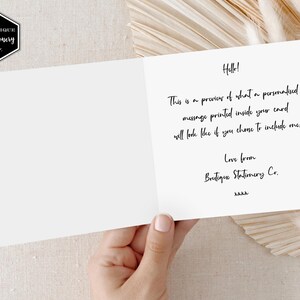 Hello!
This is a preview of what a personalised
message printed inside your card
will look like if you chose to include one.
Love from
Boutique Stationery Co.
xxxx